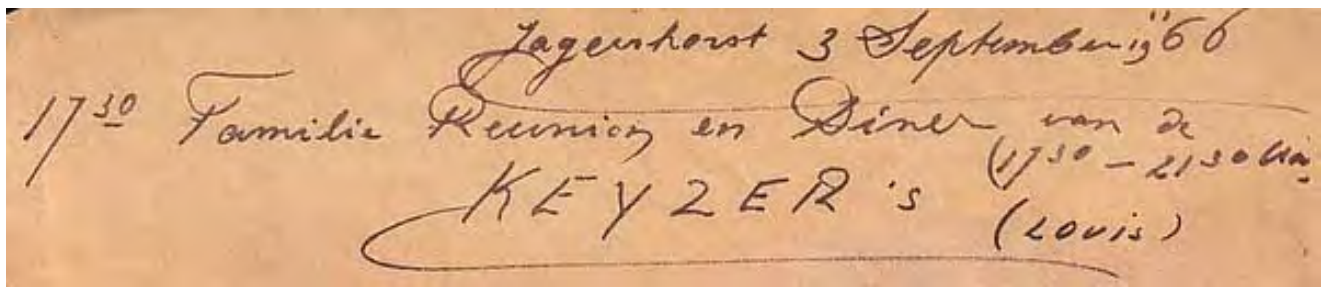 Jagershorst 3 September 1966
17³⁰ Familie Reunion en Diner van de
(17³⁰ – 21³⁰ Uur
KEYZER's (Louis)